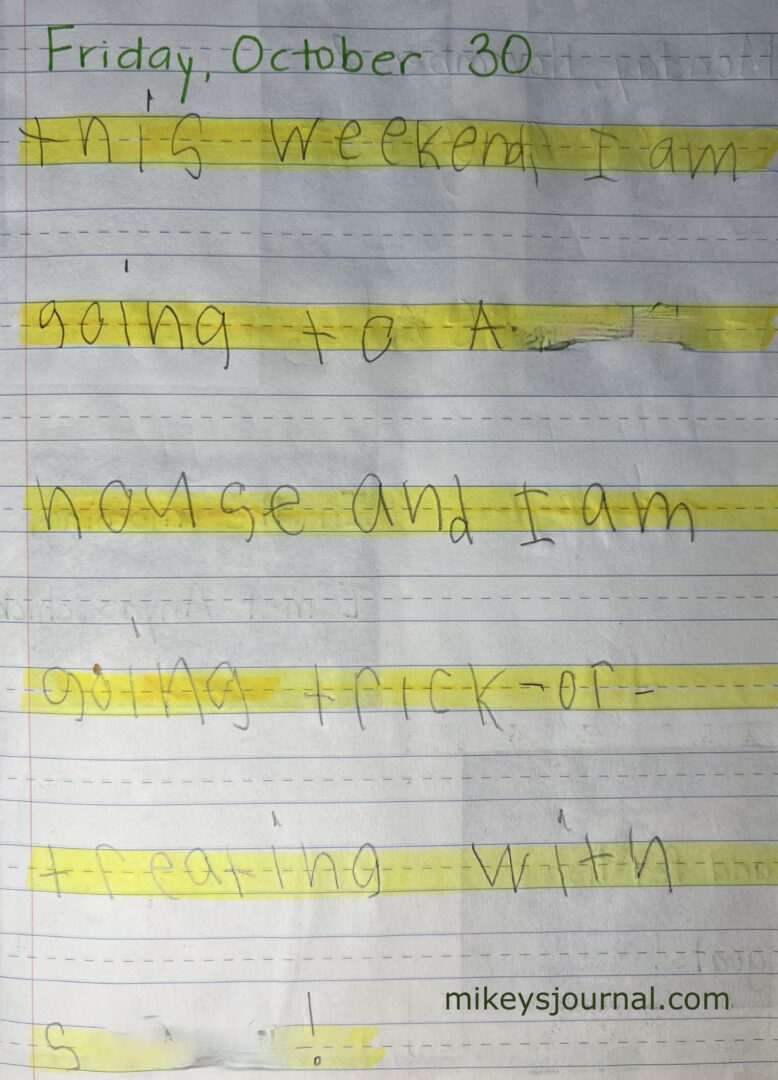 Friday, October 30
this weekend, I am
going to A
house and I am
going trick-or-
treating with
s !
mikeysjournal.com